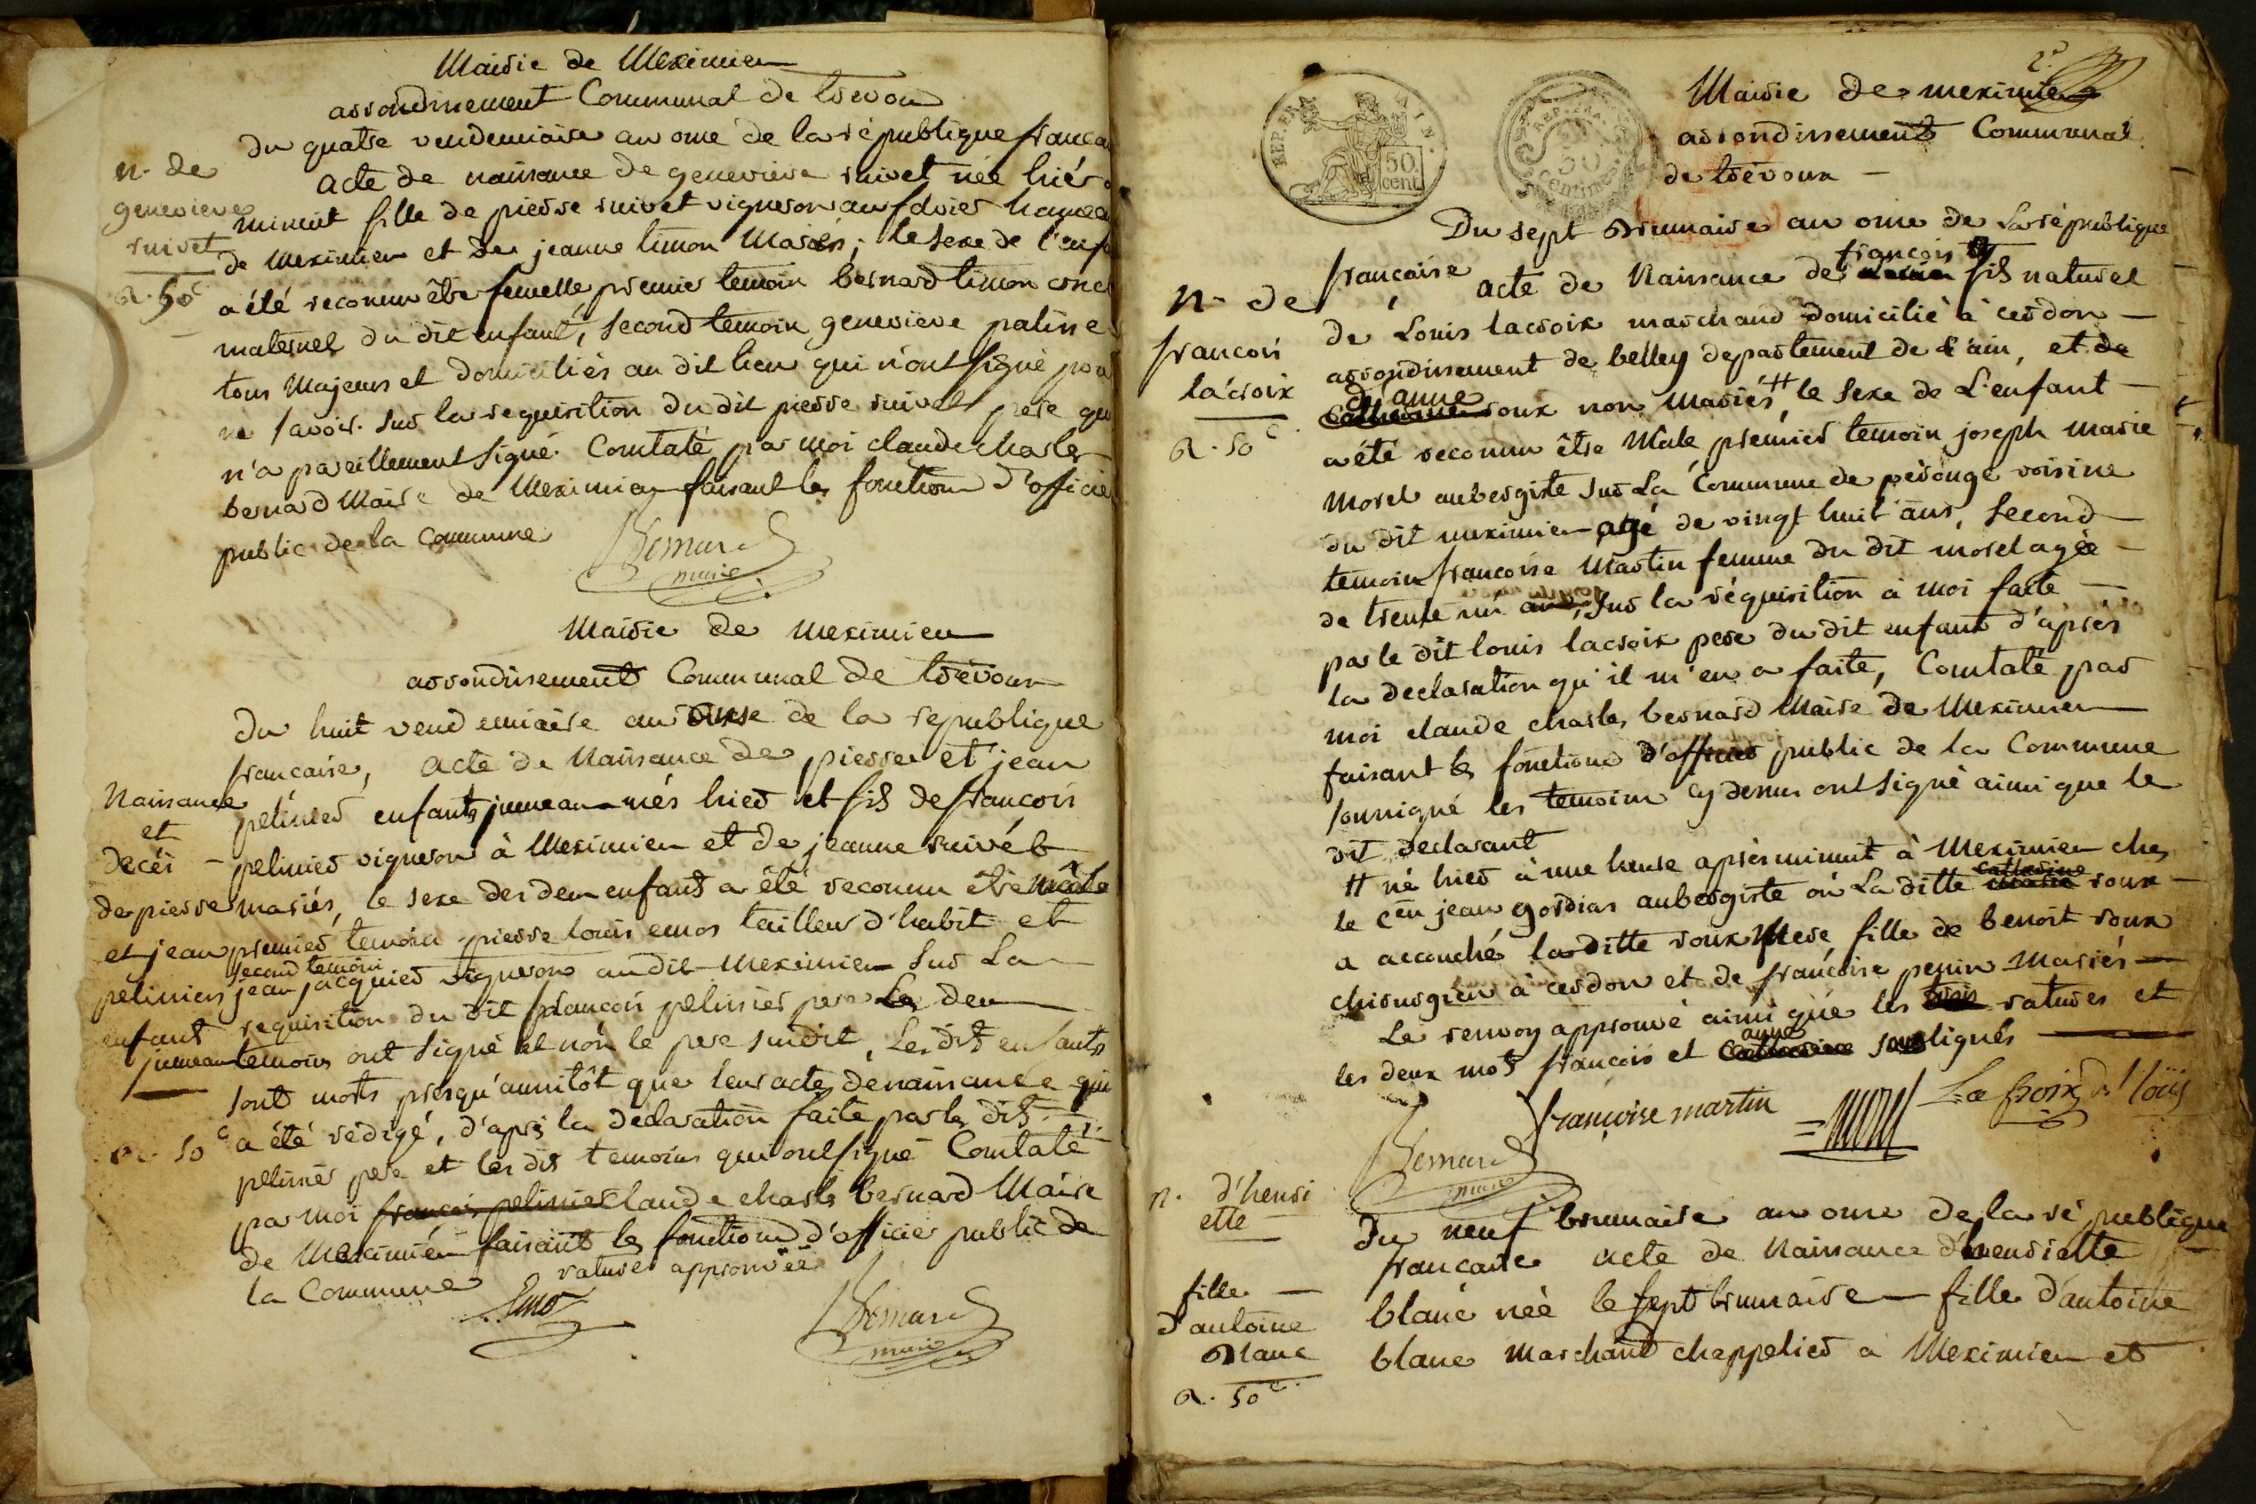 Mairie de Meximieu
arrondissement Communal de trevou
du quatre vendemiaire an onze de la république françai
n. de
genevieve
ruivet
R. 50c
acte de naissance de genevieve ruivet née hiér a
minuit fille de pierre ruivet vigneron au hamea
de meximieu et de jeanne timon Mariés; le sexe de l'enfa
a été reconnu être femelle premier temoin bernard timon
maternel du dit enfant, second temoin genevieve
tous Majeurs et domiciliés au dit lieu qui n'ont signé pou
ne savoir. sur la requisition du dit pierre ruivet pere qui
n'a pareillement signé. Constaté par moi claude charles
bernard Maire de Meximieu faisant les fonctions d'officie
public de la Commune
Bernard
maire
Mairie de meximieu
arrondissement Communal de trévoux
Du huit vendemiaire an onze de la republique
française, acte de Naissance de pierre et jean
Naissance
et
decés
de pierre
et jean
pelinier
enfant
jumeau
R. 50c
pelinier enfants jumeau nés hier et fils de françois
pelinier vigneron à Meximieu et de jeanne ruivet
mariés, le sexe des deux enfans a été reconnu être mâle
premier temoin pierre louis emor tailleur d'habit et
second temoin
jean jacquier vigneron au dit Meximieu sur La
requisition du dit françois pelinier pere Les deux
temoins ont signé et non le pere susdit, Les dits enfants
sont morts presqu'aussitôt que leur acte de naissance qui
a été rédigé, d'aprés la declaration faite par le dit
pelinier pere et les dits temoins qui ont signé Constaté
par moi françois pelinier claude charles bernard Maire
de Meximieu faisant les fonctions d'officier public de
la Commune
rature approuvée
Emor
Bernard
maire
2e
REP. FRA
50
cent
50
centimes
Mairie de meximieu
arrondissement Communal
de trévoux
Du sept Brumaire an onze de La république
n. de
françois
lacroix
R. 50c
française acte de Naissance de françois fils naturel
de Louis lacroix marchand domicilié à cerdon
arrondissement de belley departement de l'ain, et de
d'anne
Catherine roux non mariés # le sexe de L'enfant
a été reconnu être Male premier temoin joseph marie
morel aubergiste sur La Commune de pérouge voisine
du dit meximieu agé de vingt huit ans, second
temoin françoise Martin femme du dit morel agée
de trente un ans, sur la réquisition à moi faite
par le dit louis lacroix pere du dit enfant d'aprés
la declaration qu'il m'en a faite, Constaté par
moi claude charles bernard Maire de Meximieu
faisant les fonctions d'officier public de la Commune
soussigné les temoins cy dessus ont signé ainsi que le
dit declarant
# né hier à une heure aprés minuit à Meximieu chez
le cen jean gordias aubergiste où La ditte catherine roux
a accouché la ditte roux mere fille de benoit roux
chirurgien à cerdon et de françoise pepin Mariés
Le renvoy approuvé ainsi que les trois ratures et
les deux mots françois et Catherine anne soulignés
françoise martin
Morel
La croix d. loüis
Bernard
maire
n. d'henri
ette
fille
d'antoine
Blanc
R. 50c
Du neuf brumaire an onze de la république
française acte de Naissance d'henriette
blanc née le sept brumaire fille d'antoine
blanc marchand chappelier a Meximieu et